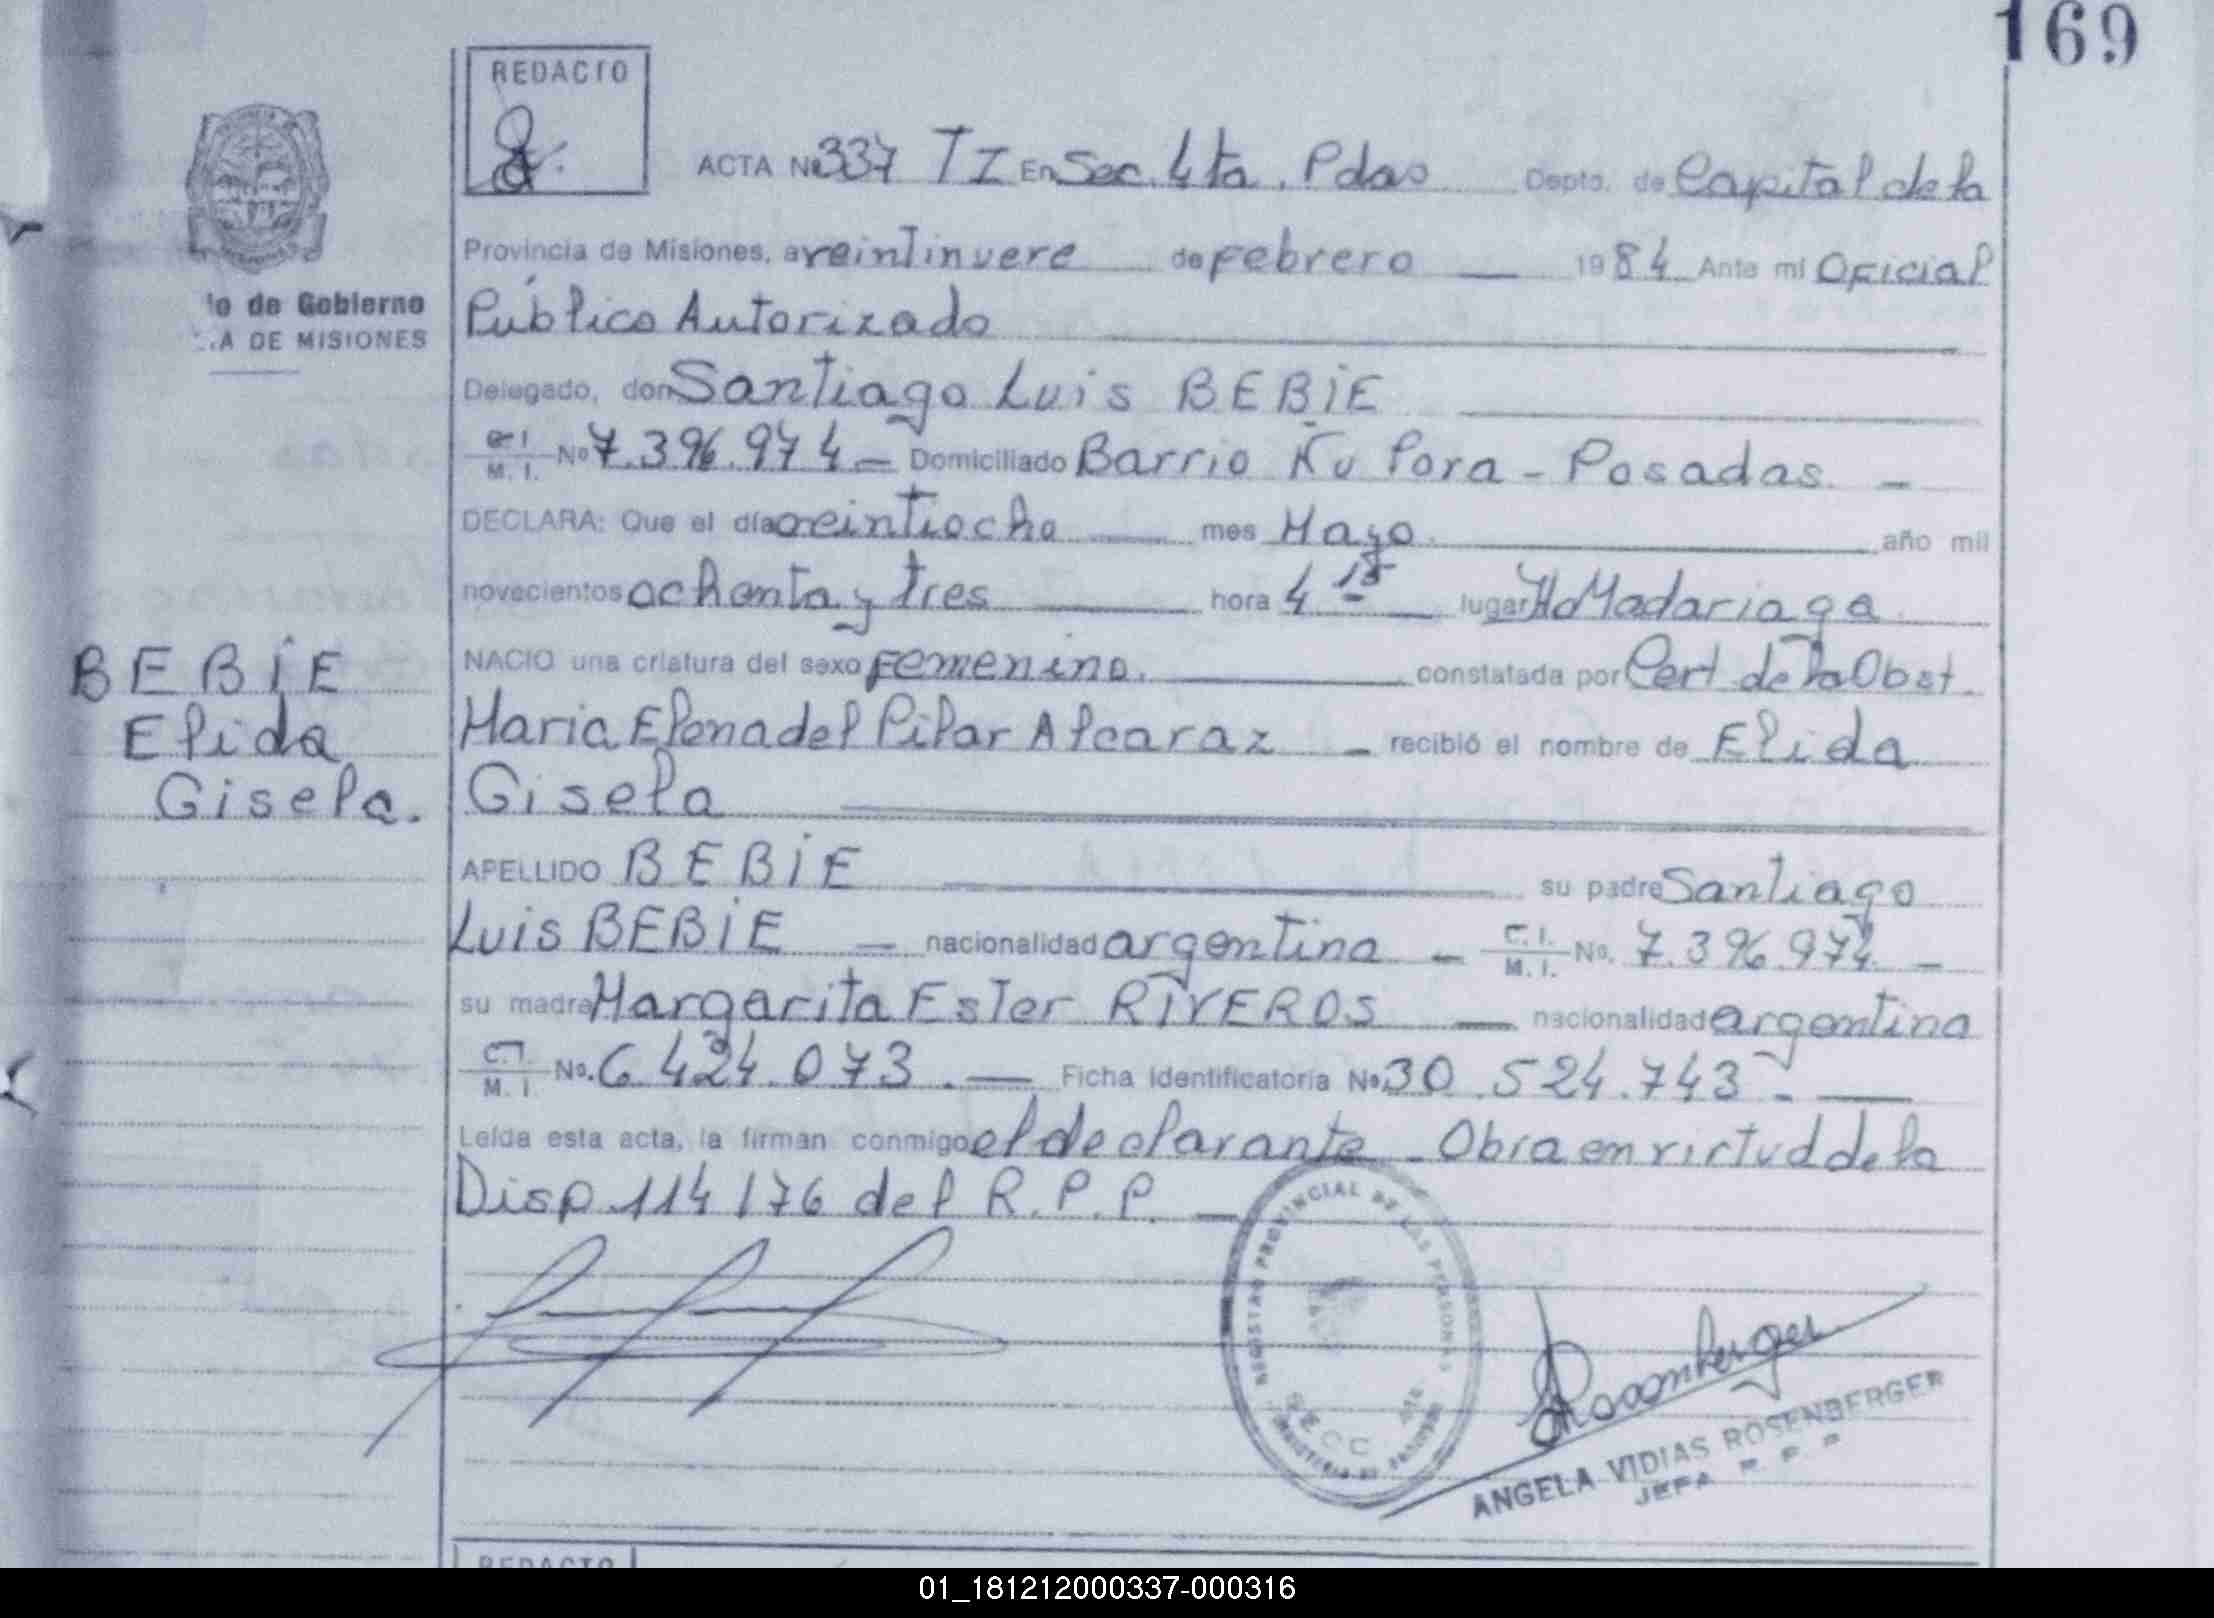 169
REDACTO
ACTA Nº 337 T I En Sec. 4ta. Pdas Depto. de Capital de la
Provincia de Misiones, a veintinueve de Febrero 1984 Ante mi Oficial
Público Autorizado
lo de Gobierno
A DE MISIONES
Delegado, don Santiago Luis BEBIE
C. I. M. I. Nº 7.396.974 Domiciliado Barrio Ñu Pora - Posadas. -
DECLARA: Que el día veintiocho mes Mayo. año mil
novecientos ochenta y tres hora 4 15 lugar Ho Madariaga
NACIO una criatura del sexo Femenino. constatada por Cert. de la Obst.
BEBIE
Maria Elena del Pilar Alcaraz - recibió el nombre de Elida
Elida
Gisela
Gisela.
APELLIDO BEBIE su padre Santiago
Luis BEBIE - nacionalidad argentina - C. I. M. I. No. 7.396.974 -
su madre Margarita Ester RIVEROS - nacionalidad argentina
C. I. M. I. No. 6.424.073. - Ficha Identificatoria Nº 30.524.743 -
Leída esta acta, la firman conmigo el declarante - Obra en virtud de la
Disp. 114/76 del R. P. P. -
REGISTRO PROVINCIAL DE LAS PERSONAS
Rosenberger
ANGELA VIDIAS ROSENBERGER
JEFA R. P. P.
REDACTO
01_181212000337-000316